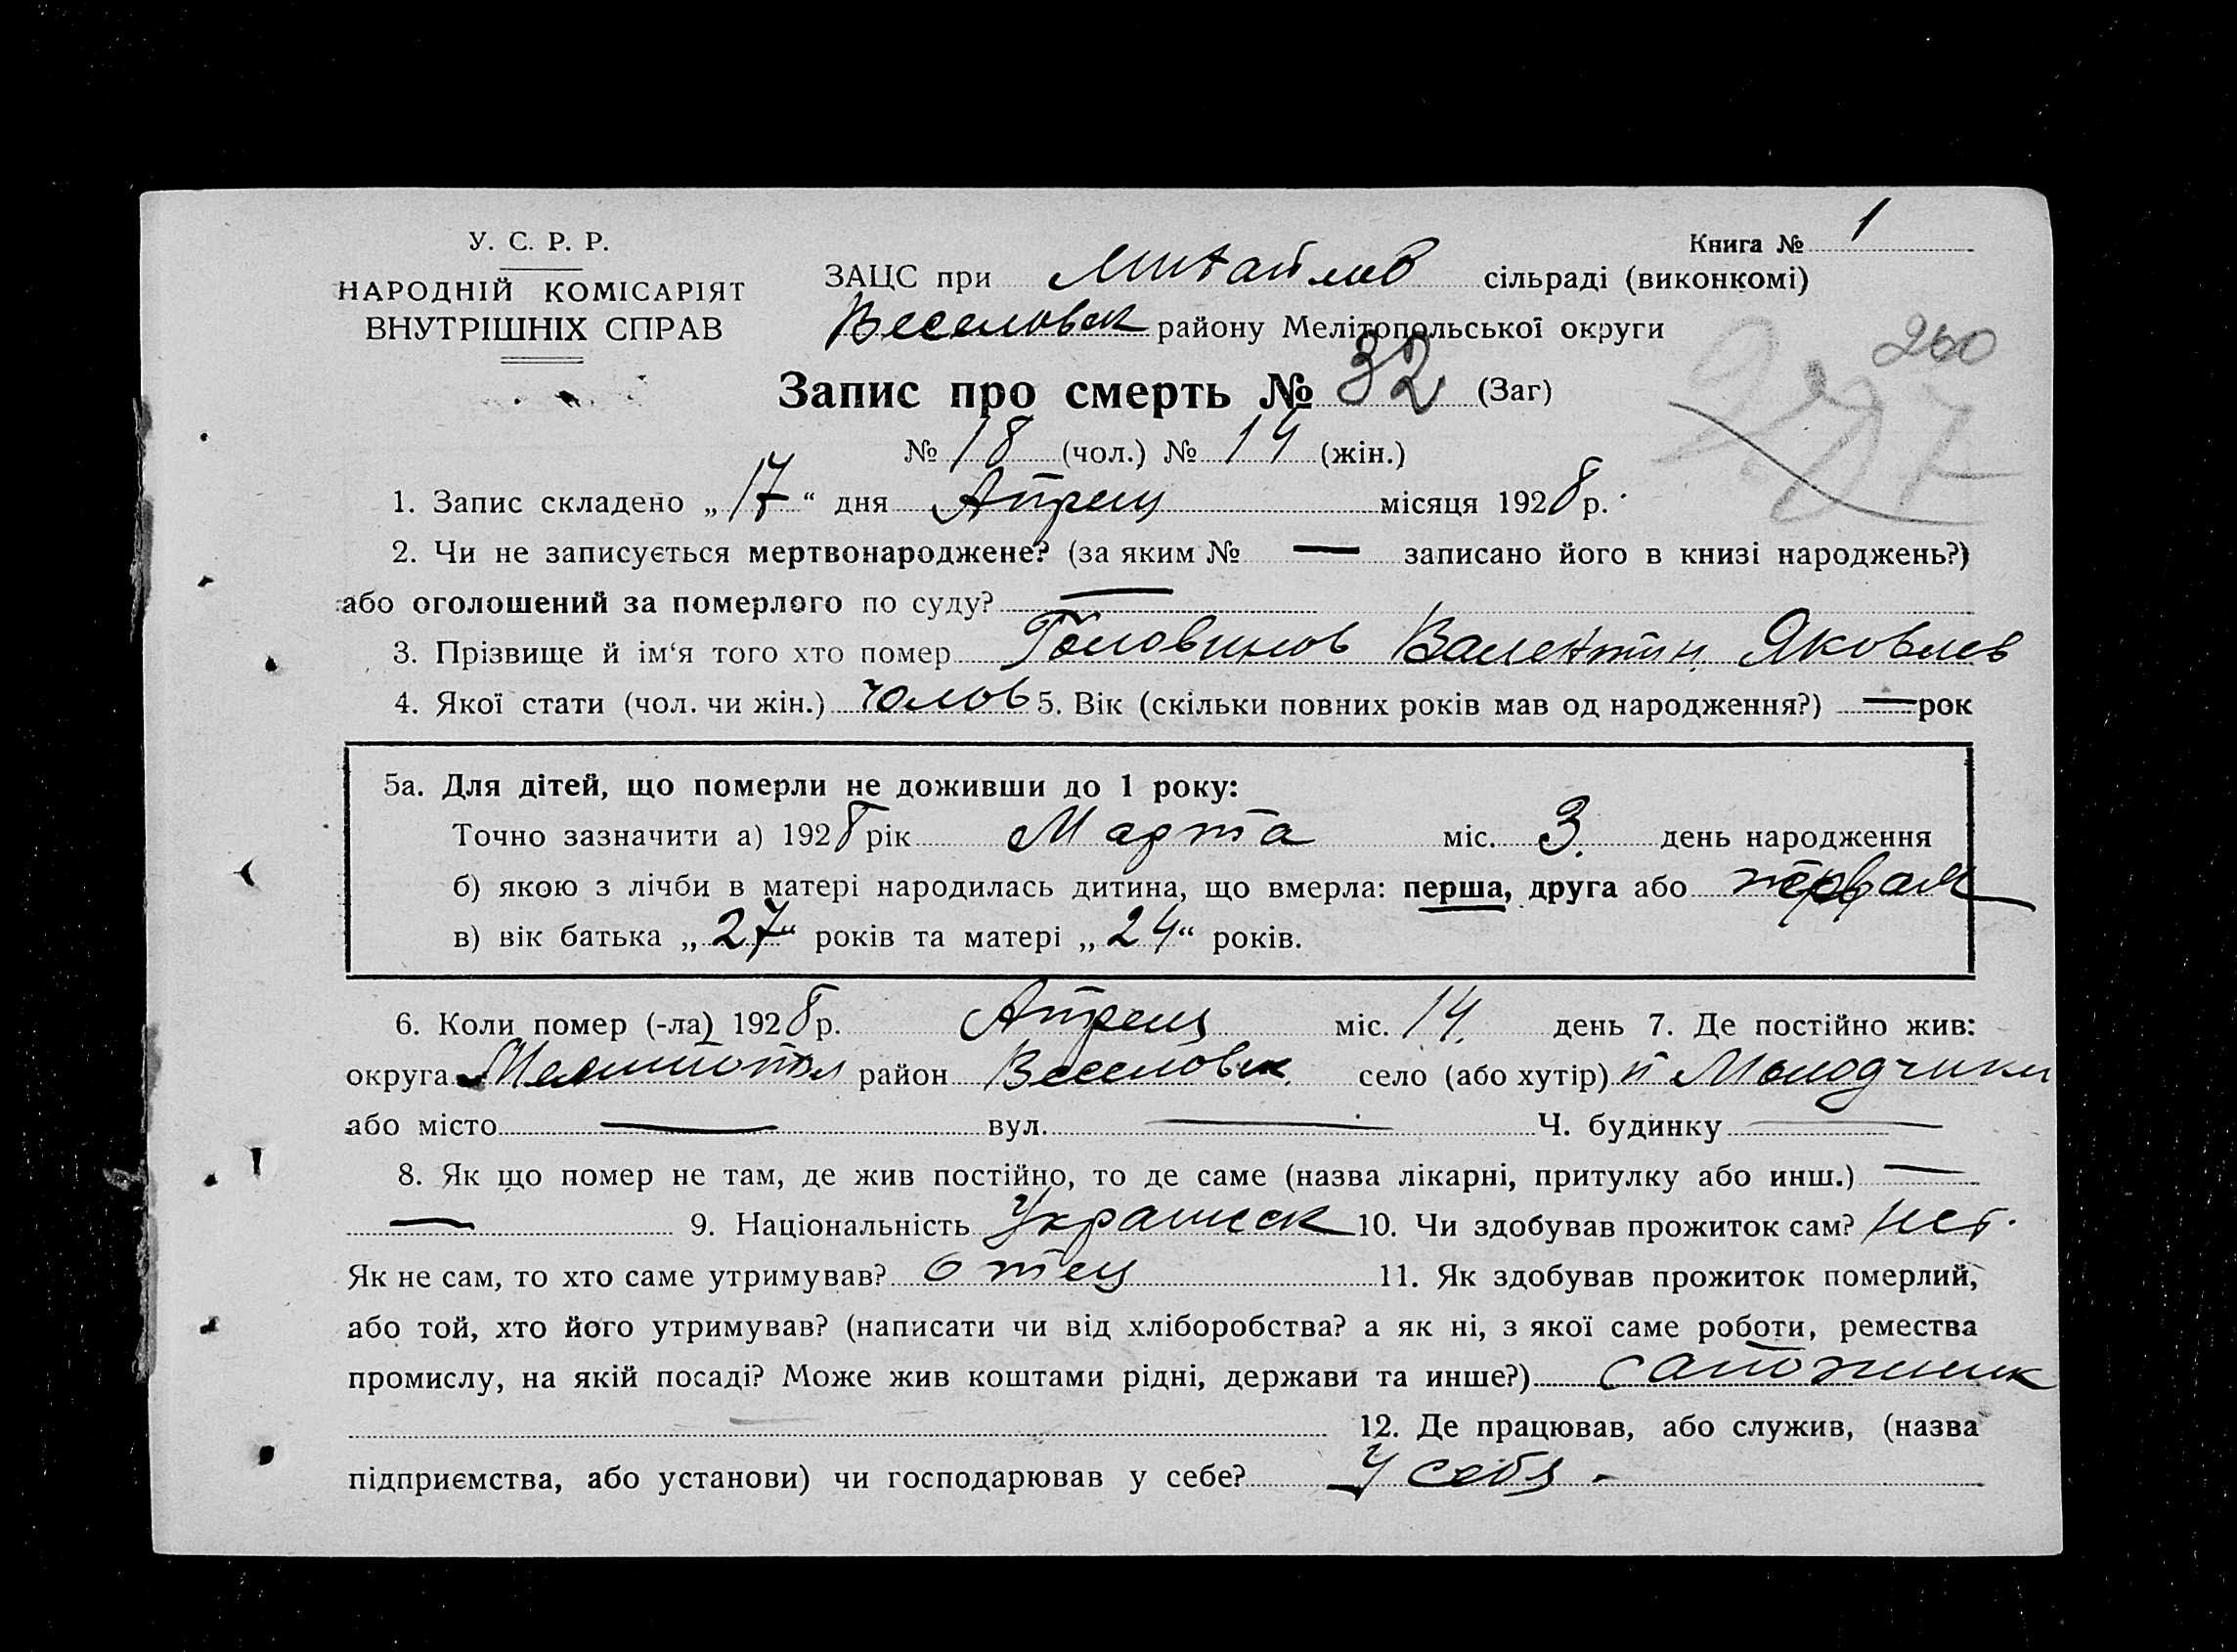 У. С. Р. Р.
НАРОДНІЙ КОМІСАРІЯТ
ВНУТРІШНІХ СПРАВ
Книга № 1
ЗАЦС при Михайлов сільраді (виконкомі)
Веселовск району Мелітопольської округи
260
Запис про смерть № 32 (Заг)
№ 18 (чол.) № 14 (жін.)
1. Запис складено „ 17 “ дня Апрель місяця 1928 р.
2. Чи не записується мертвонароджене? (за яким № — записано його в книзі народжень?)
або оголошений за померлого по суду? —
3. Прізвище й ім‘я того хто помер Головинов Валентин Яковлев
4. Якої стати (чол. чи жін.) чолов 5. Вік (скільки повних років мав од народження?) — рок
5а. Для дітей, що померли не доживши до 1 року:
Точно зазначити а) 1928 рік Марта міс. 3. день народження
б) якою з лічби в матері народилась дитина, що вмерла: перша, друга або первая
в) вік батька „ 27 “ років та матері „ 24 “ років.
6. Коли помер (-ла) 1928 р. Апрель міс. 14. день 7. Де постійно жив:
округа Мелитопол район Веселовск. село (або хутір) п
або місто — вул. — Ч. будинку —
8. Як що помер не там, де жив постійно, то де саме (назва лікарні, притулку або инш.) —
— 9. Національність Украинск 10. Чи здобував прожиток сам? нет.
Як не сам, то хто саме утримував? отец 11. Як здобував прожиток померлий,
або той, хто його утримував? (написати чи від хліборобства? а як ні, з якої саме роботи, ремества
промислу, на якій посаді? Може жив коштами рідні, держави та инше?) сапожник
12. Де працював, або служив, (назва
підприємства, або установи) чи господарював у себе? У себя -